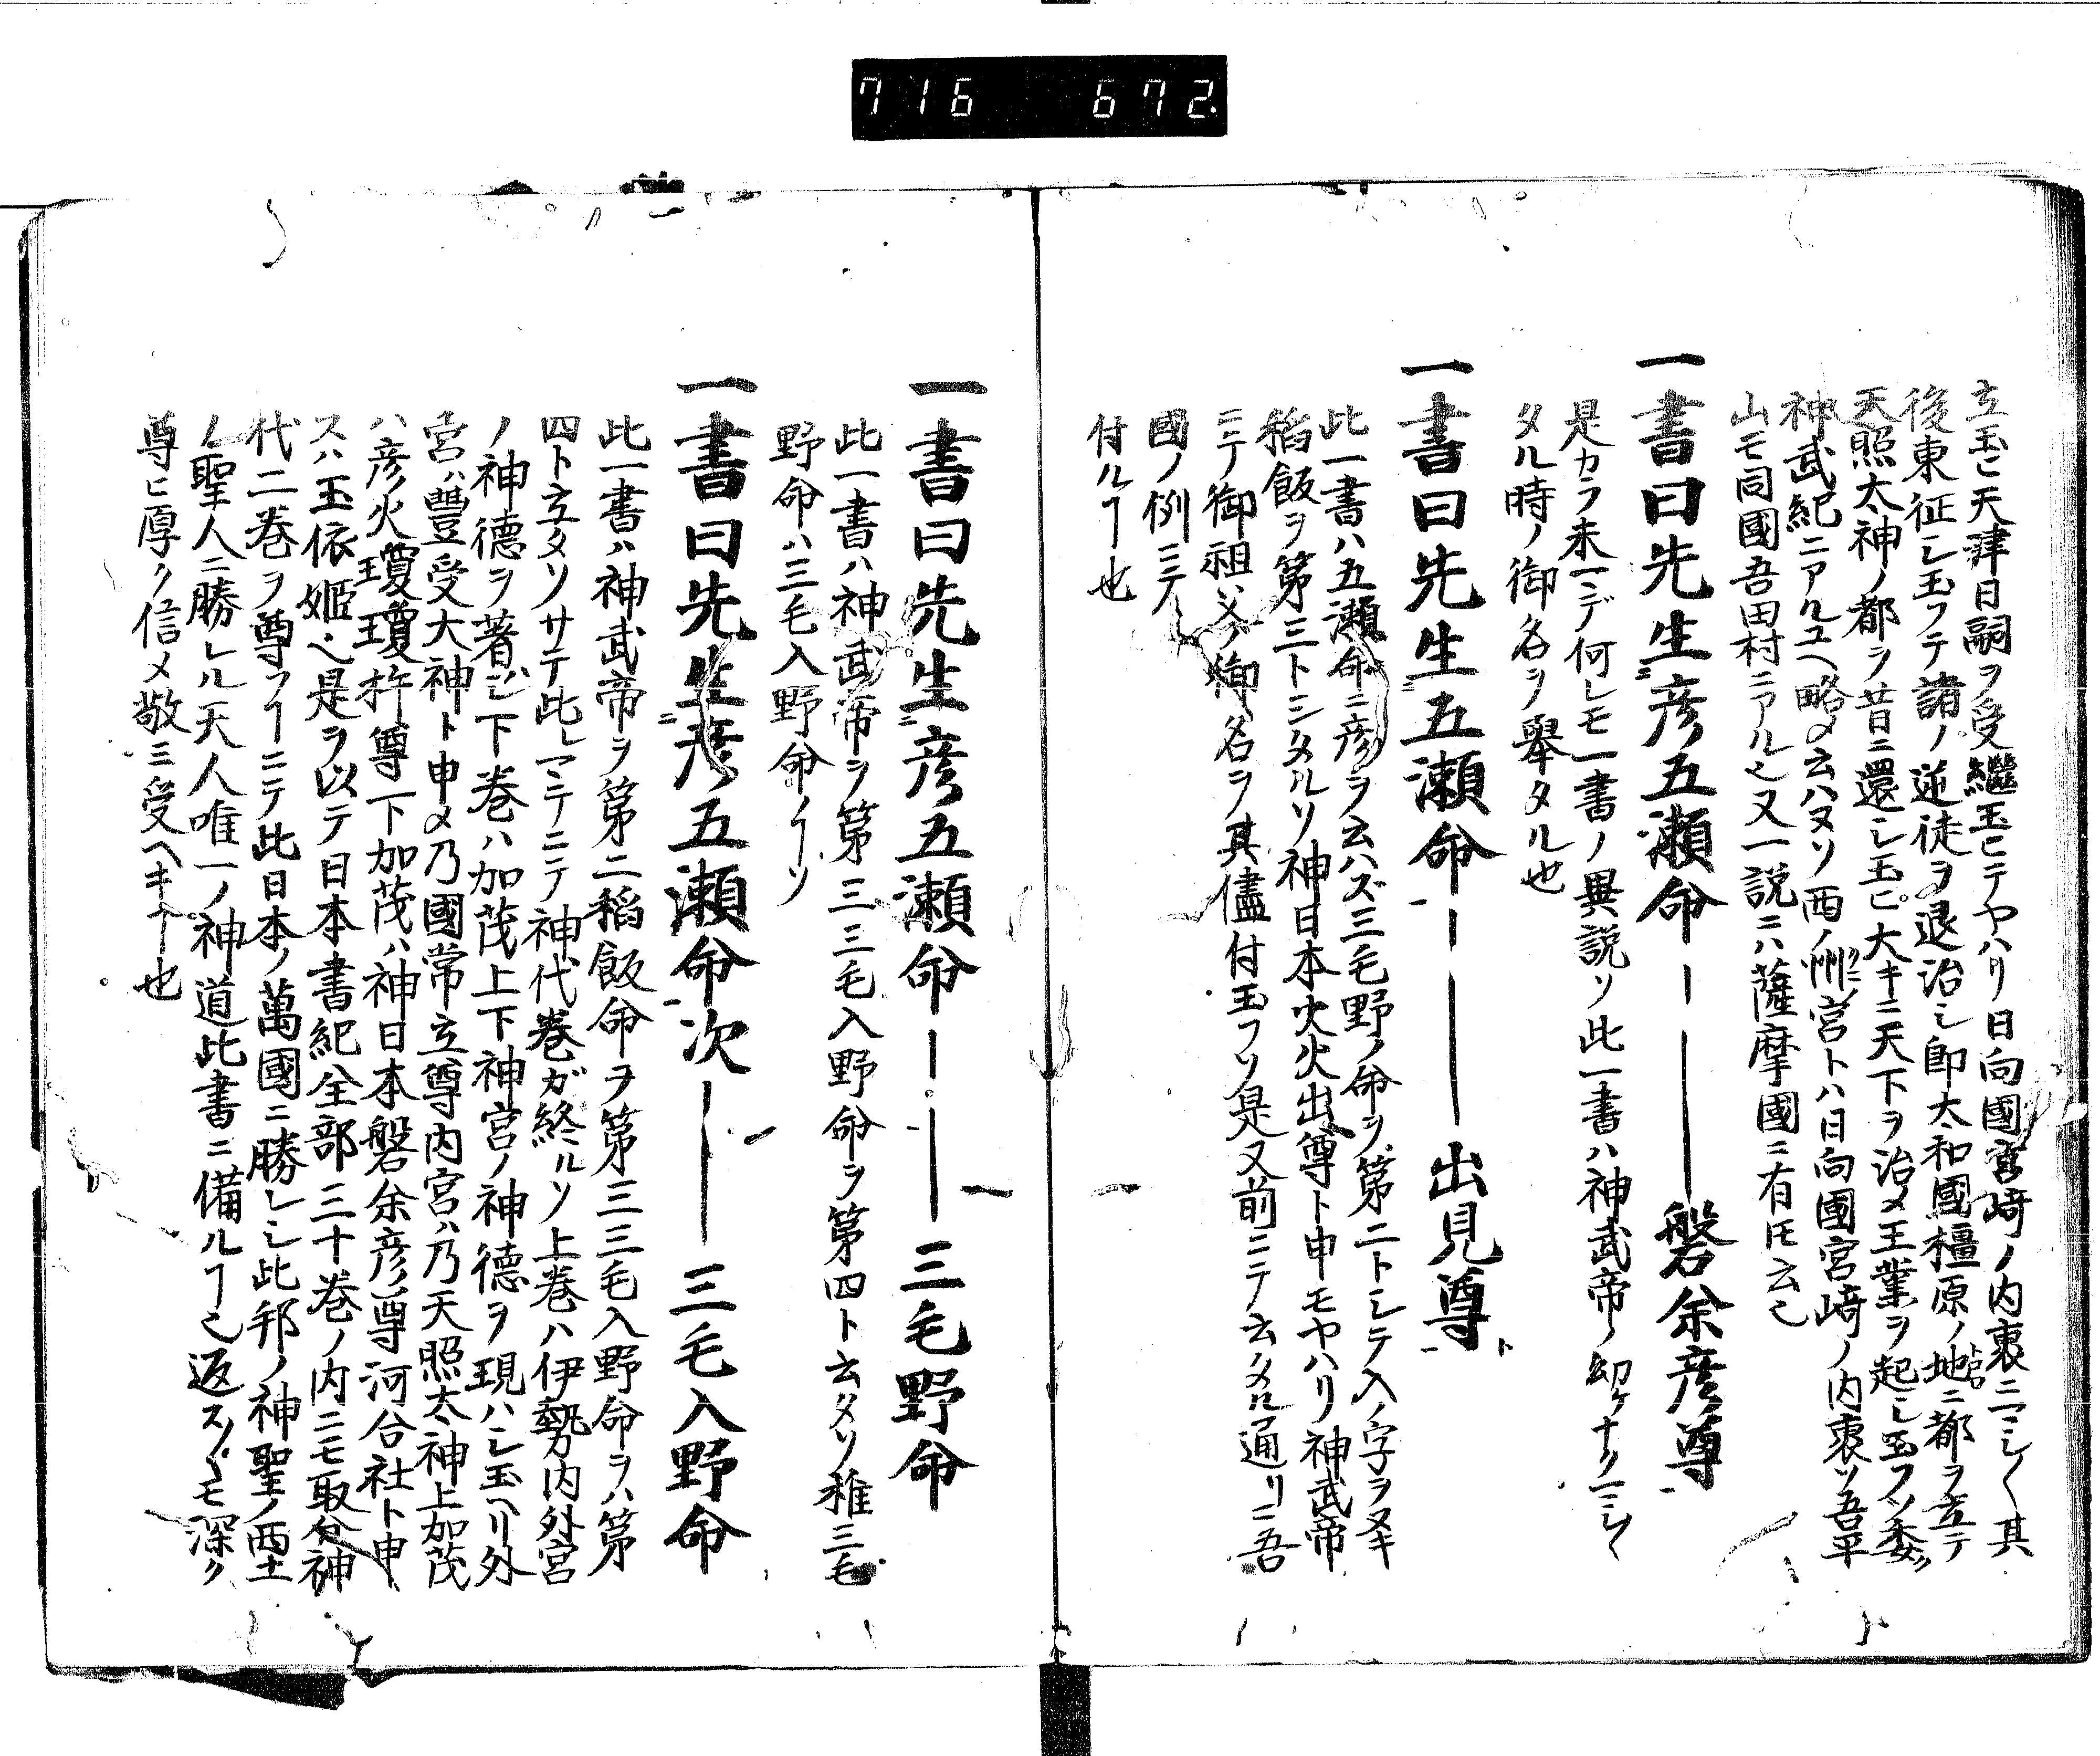 716 672.
立玉ヒ天津日嗣ヲ受繼玉ヒテヤハリ日向國宮崎ノ内裏ニマシ〱其
後東征シ玉フテ諸ノ逆徒ヲ退治シ即太和國橿原ノ地ニ都ヲ立テ
天照太神ノ都ヲ昔ニ還シ玉ヒ大キニ天下ヲ治メ王業ヲ起シ玉フソ委ク
神武紀ニアルユヘ略メ云ハヌソ西ノ州宮トハ日向國宮崎ノ内裏ソ吾平
山モ同國吾田村ニアル也又一説ニハ薩摩國ニ有トモ云也
一書曰先生彦五瀬命――磐余彦尊
是カラ末マデ何レモ一書ノ異説ソ此一書ハ神武帝ノ幼ケナクマシ〱
タル時ノ御名ヲ舉タル也
一書曰先生五瀬命――出見尊
此一書ハ五瀬命ニ彦ヲ云ハズ三毛野ノ命ヲ第二トシテ入ノ字ヲヌキ
稻飯ヲ第三トシタルソ神日本火火出尊ト申モヤハリ神武帝
ニテ御祖父ノ御名ヲ其儘付玉フソ是又前ニテ云タル通リニ吾
國ノ例ニテ
付ルヿ也
一書曰先生彦五瀬命――三毛野命
此一書ハ神武帝ヲ第三三毛入野命ヲ第四ト云タソ稚三毛
野命ハ三毛入野命ノヿソ
一書曰先生彦五瀬命次――三毛入野命
此一書ハ神武帝ヲ第二稻飯命ヲ第三三毛入野命ヲハ第
四ト立タソサテ此レマテニテ神代卷ガ終ルソ上卷ハ伊勢内外宮
ノ神德ヲ著シ下卷ハ加茂上下神宮ノ神德ヲ現ハシ玉ヘリ外
宮ハ豐受大神ト申メ乃國常立尊内宮ハ乃天照太神上加茂
ハ彦火瓊瓊杵尊下加茂ハ神日本磐余彦尊河合社ト申
スハ玉依姫也是ヲ以テ日本書紀全部三十卷ノ内ニモ取分神
代二卷ヲ尊フヿニテ此日本ノ萬國ニ勝レシ此邦ノ神聖ノ西土
ノ聖人ニ勝レル天人唯一ノ神道此書ニ備ルヿ也返ス〱モ深ク
尊ヒ厚ク信メ敬ミ受ヘキヿ也